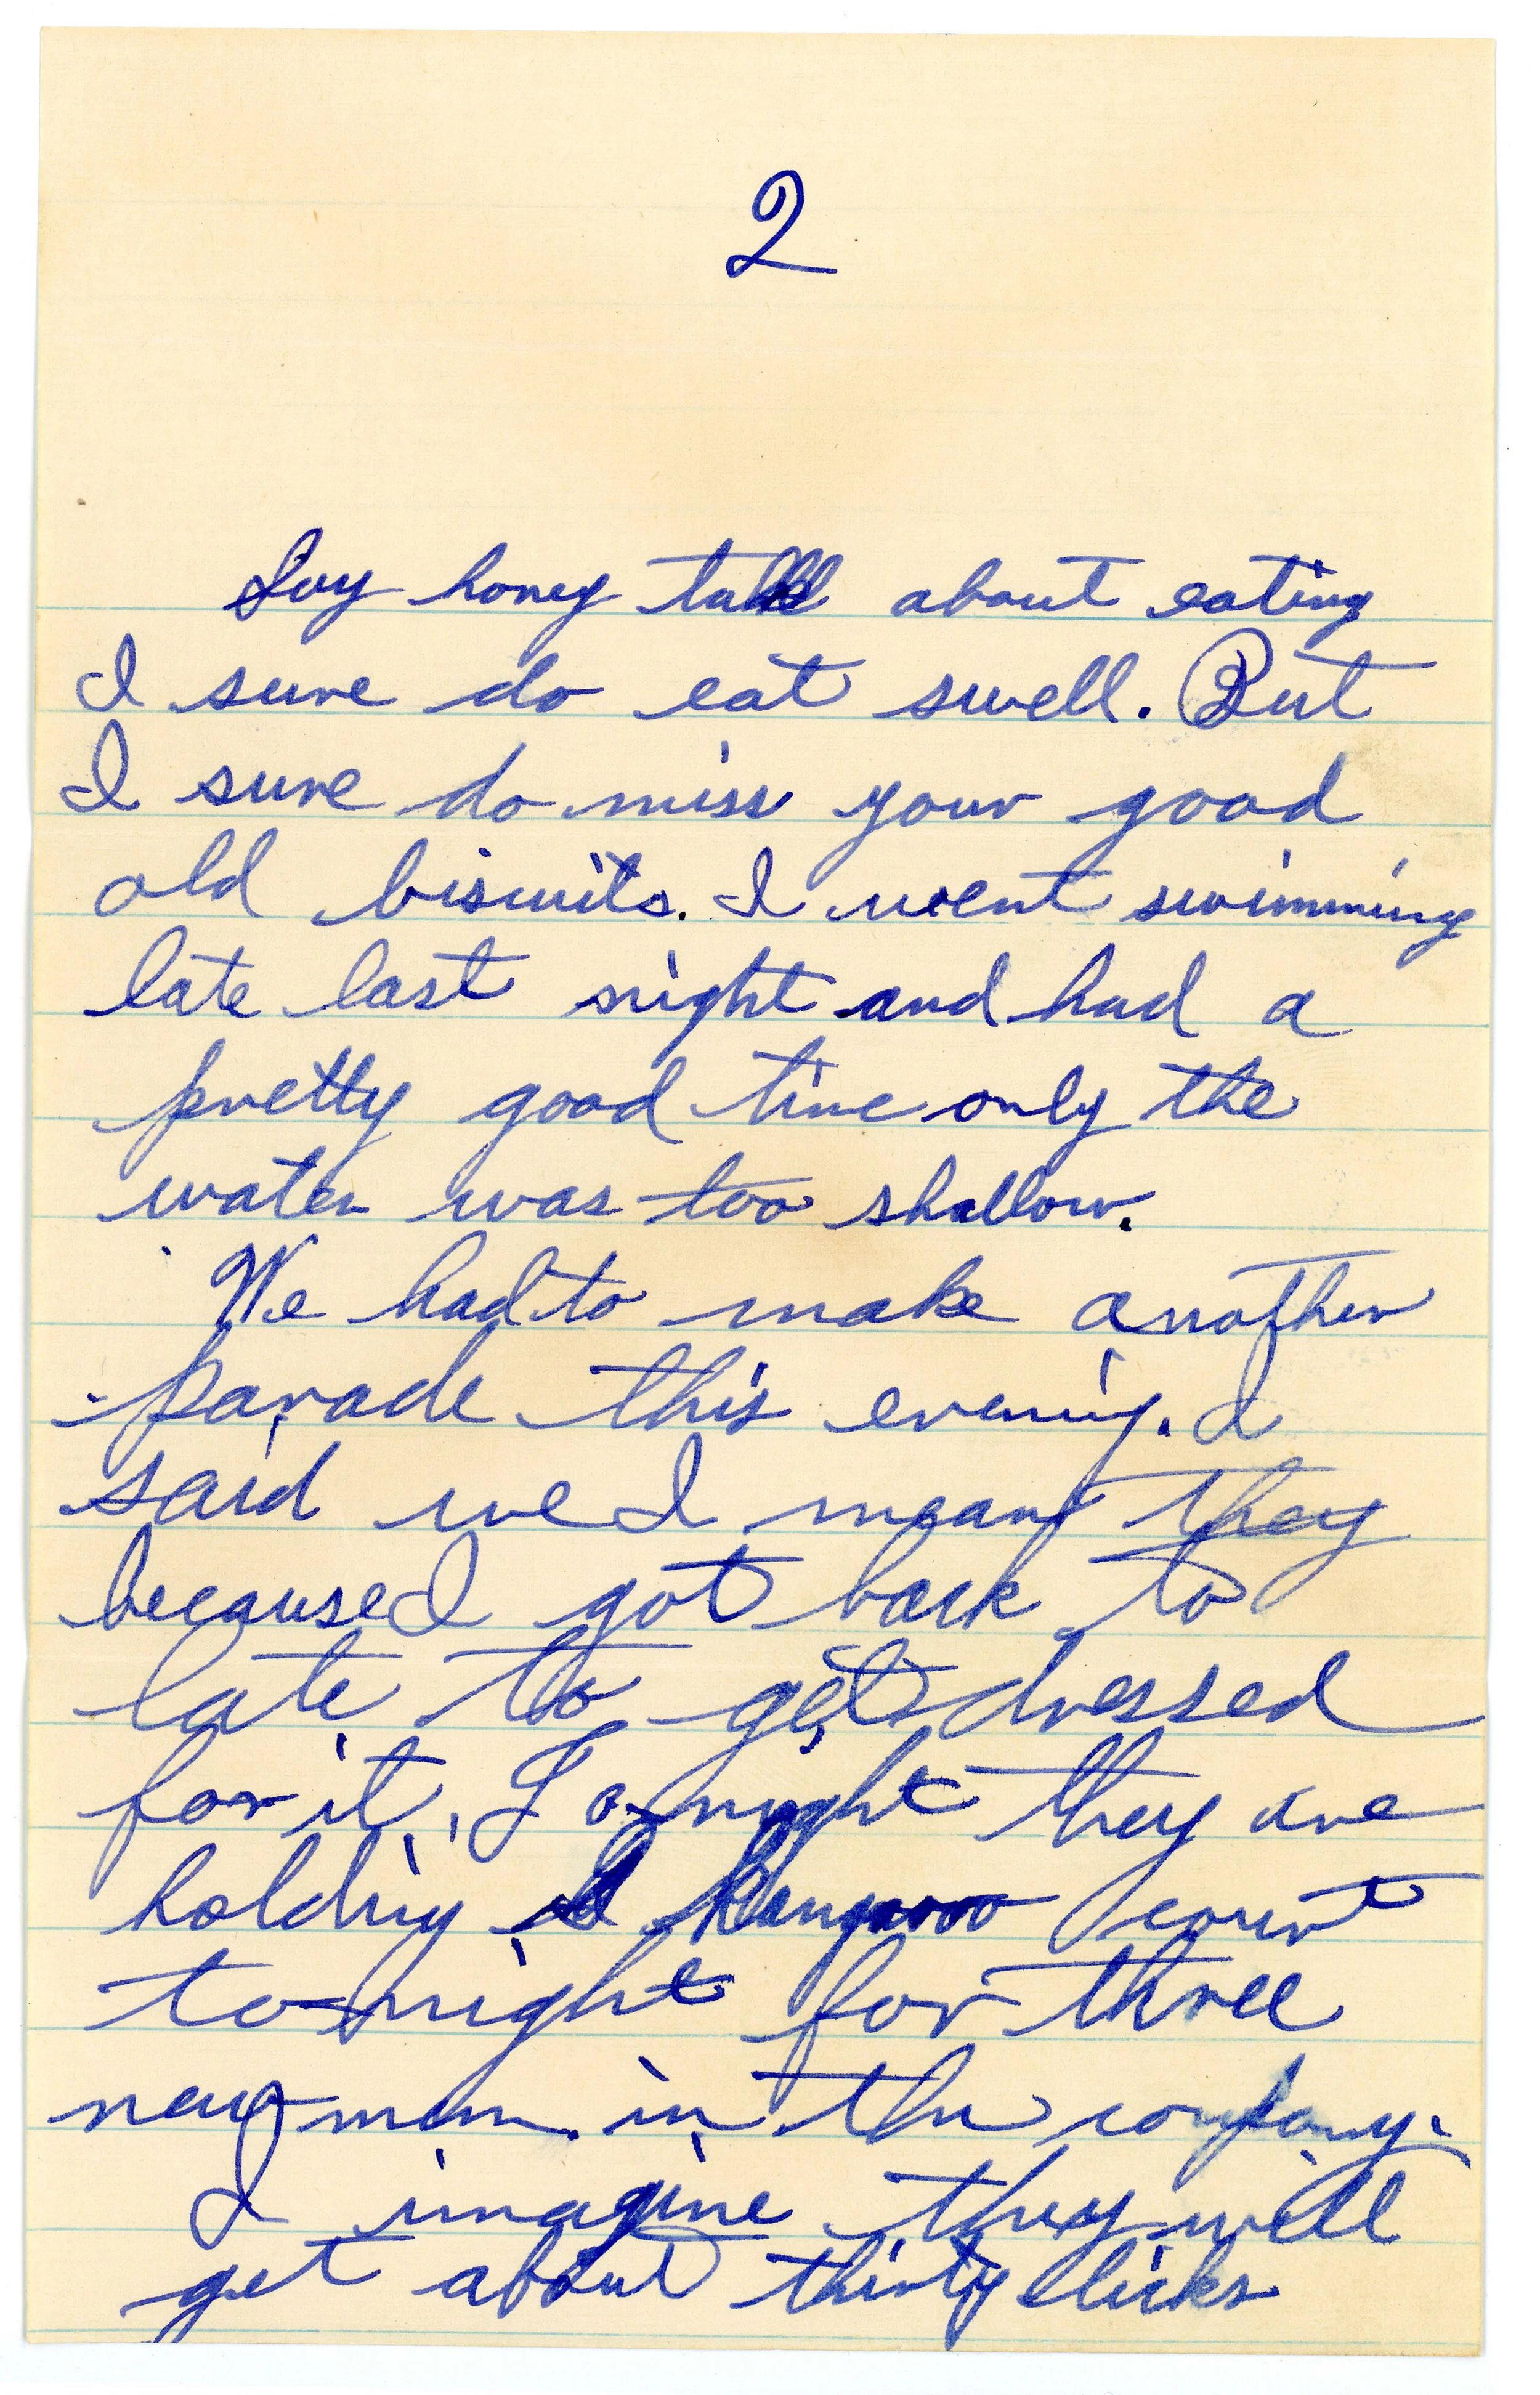 2
Say honey talk about eating
I sure do eat swell. But
I sure do miss your good
old biscuits. I went swimming
late last night and had a
pretty good time only the
water was too shallow.
We had to make another
parade this evening. I
said we I mean they
because I got back to
late to get dressed
for it. Tonight they are
holding a Kangaroo court
to-night for three
new men in the company.
I imagine they will
get about thirty licks